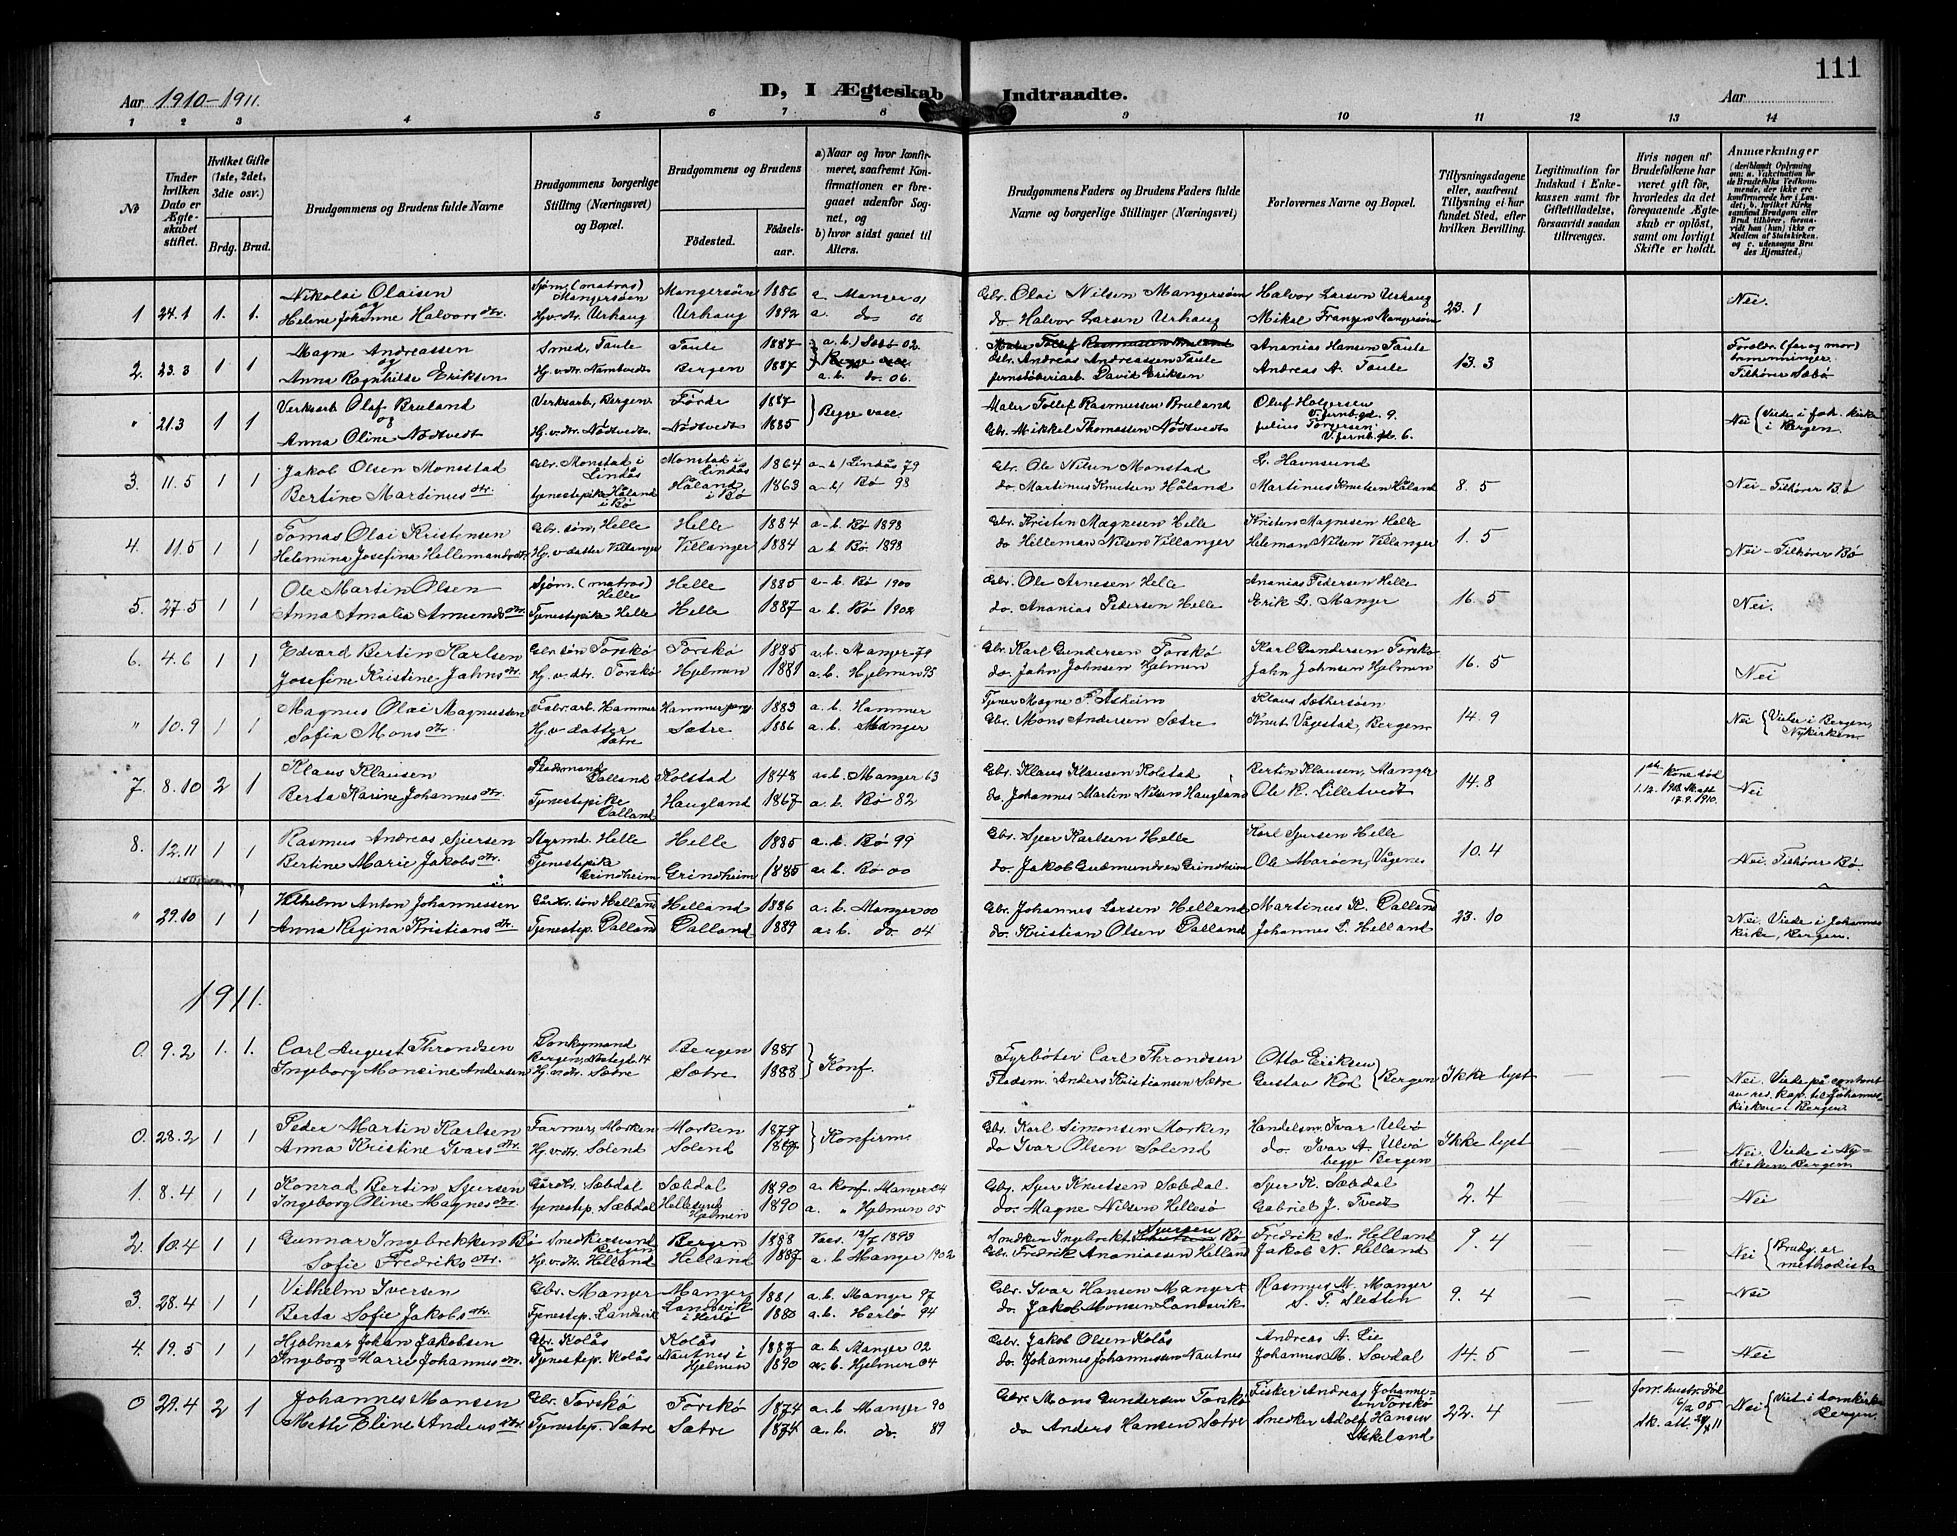 111
Aar 1910-1911.
D, I Ægteskab Indtraadte.
Aar
1 2 3 4 5 6 7 8 9 10 11 12 13 14
No
Under hvilken Dato er Ægteskabet stiftet.
Hvilket Gifte (1ste, 2det, 3die osv.)
Brdg. Brud.
Brudgommens og Brudens fulde Navne
Brudgommens borgerlige Stilling (Næringsvei) og Bopæl.
Brudgommens og Brudens
Födested. Födselsaar.
a) Naar og hvor konfirmeret, saafremt Konfirmationen er foregaaet udenfor Sognet, og
b) hvor sidst gaaet til Alters.
Brudgommens Faders og Brudens Faders fulde Navne og borgerlige Stillinger (Næringsvei)
Forlovernes Navne og Bopæl.
Tillysningsdagene eller, saafremt Tillysning ei har fundet Sted, efter hvilken Bevilling.
Legitimation for Indskud i Enkekassen samt for Giftetilladelse, forsaavidt saadan tiltrænges.
Hvis nogen af Brudefolkene har været gift før, hvorledes da det foregaaende Ægteskab er opløst, samt om lovligt Skifte er holdt.
Anmærkninger
(deriblandt Oplysning om: a. Vakcination for de Brudefolks Vedkommende, der ikke ere konfirmerede her i Landet; b. hvilket Kirkesamfund Brudgom eller Brud tilhører, forsaavidt han (hun) ikke er Medlem af Statskirken, og c. udensogns Brudes Hjemsted.)
1 24.1 1. 1. Nikolai Olaisen Sjøm. (matros) Mangersøen Mangersøen 1886 a Manger 01 Gbr. Olai Nilsen Mangersøen Halvor Larsen Urhaug 23.1 Nei.
og Helene Johanne Halvorsdtr. Hj.v. dtr. Urhaug Urhaug 1892 a. do 06 do. Halvor Larsen Urhaug Mikal Franzen Mangersøen
2. 23.3 1 1 Magne Andreassen Smed, Taule Taule 1887 a. b) Sæbø 02 Gbr. Andreas Andreassen Taule Ananias Hansen Taule 13.3 Foreldr. (far og mor)
og Anna Ragnhilde Eriksen Hj.v. dtr. Namtvedt Bergen 1887 a. b. do. 06. Jernstøberiarb. David Eriksen Andreas A. Taule Tilhører Sæbø
" 21.3 1 1 Verksarb Olaf Bruland Verksarb, Bergen Førde 1887 Begge vacc. Maler Tollef Rasmussen Bruland Oluf Holgersen V. Jernb.gd. 9. Nei Viede i Joh. kirke i Bergen.
og Anna Oline Nødtvedt Hj.v. dtr. Nødtvedt. Nødtvedt 1885 Gbr. Mikkel Thomassen Nødtvedt Julius Torgersen V. Jernb.gd. 6.
3. 11.5 1 1 Jakob Olsen Monstad Gbr. Monstad i Lindås Monstad i Lindås 1864 a-b) Lindås 79 Gbr. Ole Nilsen Monstad L. Havnsund 8.5 Nei - Tilhører Bø
Bertine Martinusdtr. tjenestepike Håland i Bø Håland i Bø 1863 a b) Bø 98 do. Martinus Knutsen Håland Martinus Knutsen Håland
4. 11.5 1 1 Tomas Olai Kristensen Gbr. søn, Helle Helle 1884 a-b Bø 1898 Gbr. Kristen Magnesen Helle Kristen Magnesen Helle 1.5 Nei - Tilhører Bø
Helemina Josefina Hellemandsdtr. Hj.v. datter Villanger Villanger 1884 a b Bø 1898 do Hilleman Nilsen Villanger Heleman Nilsen Villanger
5. 27.5 1 1 Ole Martin Olsen Sjøm. (matros) Helle Helle 1885 a-b. Bø 1900 Gbr. Ole Arnesen Helle Ananias Pedersen Helle 16.5 Nei.
Anna Amalia Amundsdtr Tjenestepike Helle Helle 1887 a. b. Bø 1902 do. Ananias Pedersen Helle Erik L. Manger
6. 4.6 1 1 Edvard Bertin Karlsen Gbr. søn Torskø Torskø 1885 a. b. Manger 79 Gbr. Karl Gundersen Torskø Karl Gundersen Torskø 16.5 Nei
Josefine Kristine Jahnsdtr. Hj.v. dtr. Torskø Hjelmen 1881 a. b. Hjelmen 95 do. Jahn Johnsen Hjelmen Jahn Johnsen Hjelmen
" 10.9 1 1 Magnus Olai Magnussen Fabr. arb. Hammer Hammer 1883 a. b. Hammer Tjener Magne P. Askeim Klaus Sæthersøen 14.9 Nei Viede i Bergen, Nykirken.
Sofia Monsdtr. Hj.v. datter Sætre Sætre 1886 a. b. Manger Gbr. Mons Andersen Sætre Knut Vågestad, Bergen
7. 8.10 2 1 Klaus Klausen Flademand Dalland Kolstad 1848 a. b. Manger 63 Gbr. Klaus Klausen Kolstad Bertin Klausen, Manger 14.8 1ste Kone død 1.12. 1908 Skift 17.9.1910. Nei
Berta Karine Johannesdtr. Tjenestepike Dalland Haugland 1867 a. b. Bø 82 do. Johannes Martin Nilsen Haugland Ole K. Lilletvedt
8. 12.11 1 1 Rasmus Andreas Sjursen Styrmd. Helle Helle 1885 a. b. Bø 99 Gbr. Sjur Karlsen Helle Karl Sjursen Helle 10.4 Nei. Tilhører Bø
Bertine Marie Jakobsdtr. Tjenestepik Grindheim Grindheim 1885 a. b. Bø 00 do. Jakob Gudmundsen Grindheim Ole Marøen, Vågenes
" 29.10 1 1 Vilhelm Anton Johannessen Gårdbr. søn Helland Helland 1886 a. b. Manger 00 Gbr. Johannes Larsen Helland Martinus K. Dalland 23.10 Nei. Viede i Johanneskirke, Bergen.
Anna Regina Kristiansdtr. Tjenestep. Dalland Dalland 1889 a. b. do. 04 do. Kristian Olsen Dalland Johannes L. Helland
1911.
0. 9.2 1. 1. Carl August Throndsen Donkeymand Bergen, Nøstegd. 14 Bergen 1887 Konf. Fyrbøter Carl Throndsen Otto Eriksen Bergen Ikke lyst — — Nei. Viede på kontoret av res. kap. til Johanneskirken i Bergen.
Ingeborg Monsine Andersen Hj.v. dtr. Sætre Sætre 1888 Fladsm. Anders Kristiansen Sætre Gustav Kød
0. 28.2 1 1 Peder Martin Karlsen Farmer, Morken Morken 1879 Konfirm. Gbr. Karl Simonsen Morken Handelsm. Ivar Ulvø Ikke lyst — — Nei. Viede i Nykirken, Bergen.
Anna Kristine Ivarsdtr Hj.v. dtr. Solend Solend do Ivar Olsen Solend do. Ivar A. Ulvø begge Bergen
1. 8.4 1 1 Konrad Bertin Sjursen Gårdbr. Sæbdal Sæbdal 1890 a. Konf. Manger 04 Gbr. Sjur Knutsen Sæbdal Sjur K. Sæbdal 2.4 — Nei
Ingeborg Oline Magnesdtr. tjenestep. Sæbdal Hellesund Hjelmen 1890 a. " Hjelmen 05 do. Magne Nilsen Hellesø Gabriel J. Tvedt
2. 10.4 1 1 Gunnar Ingebrektsen Bø Snedkersvend Bergen Bergen 1888 Vacc. 12/7 1893 Snedker Ingebrekt Sjursen Bø Fredrik A. Helland 9.4 — — Nei Brudg. er methodist
Sofie Fredriksdtr. Hj.v. dtr. Helland Helland 1887 a. b Manger 1902 Gbr. Fredrik Ananiassen Helland Jakob N. Helland
3. 28.4 1 1 Vilhelm Iversen Gbr. Manger Manger 1881 a. b. Manger 97 Gbr. Ivar Hansen Manger Rasmus M. Manger 9.4 — — Nei
Berta Sofie Jakobsdtr. Tjenestep. Landsvik Landsvik i Herlø 1880 a. b. Herlø 94 do. Jakob Monsen Landsvik S. T. Sletten
4. 19.5 1 1 Hjalmar Johan Jakobsen Gbr. Kolås Kolås 1887 a. b Manger 02 Gbr. Jakob Olsen Kolås Andreas A. Lie 14.5 — — Nei
Ingeborg Marie Johannesdtr. Tjenestep. Kolås Nautnes i Hjelmen 1890 a. b. Hjelmen 04 do. Johannes Johannessen Nautnes Johannes M. Sævdal
0 29.4 2 1 Johannes Monsen Gbr. Torskø Torskø 1874 a. b Manger 90 Gbr. Mons Gundersen Torskø Fisker Andreas Johannessen Torskø 22.4 — forr. hustru død 05 sk. att. Nei Viet i domkirken Bergen.
Mette Eline Andersdtr Tjenestep. Sætre Sætre 1874 a. b. do. 89 do Anders Hansen Sætre Snedker Adolf Hansen Askeland